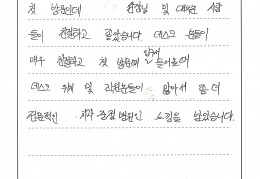 첫 방문인데 원장님 및 대부분 사람
들이 친절하고 좋았습니다. 데스크 분들이
매우 친절하고 첫 방문에 들어올때
데스크 위치 및 직원분들이 많아서 좀 더
전문적인 척추 교정 병원인 느낌을 받았습니다.